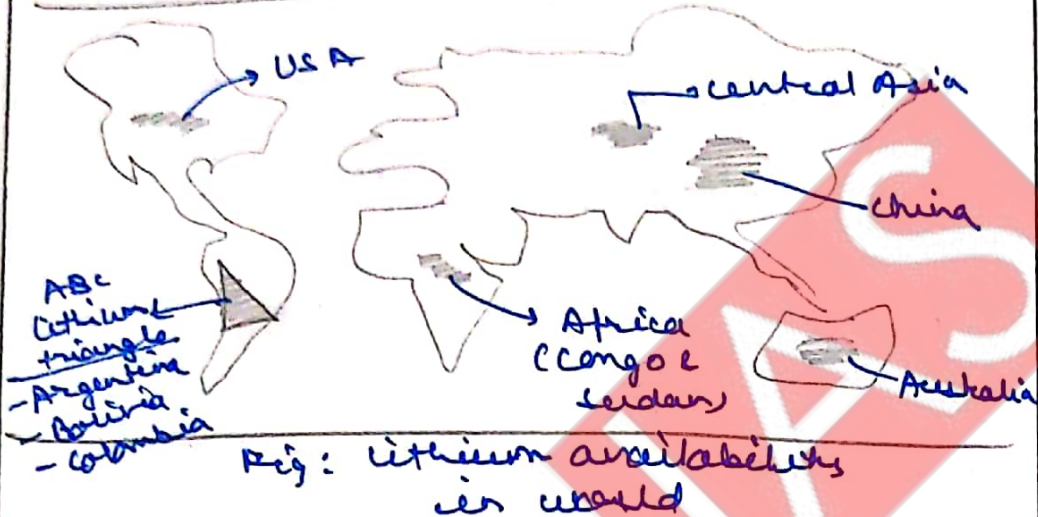 USA
Central Asia
China
ABC
Lithium
triangle
- Argentina
- Bolivia
- Colombia
Africa
(Congo &
Sudan)
Australia
Fig: Lithium availability
in world
IAS